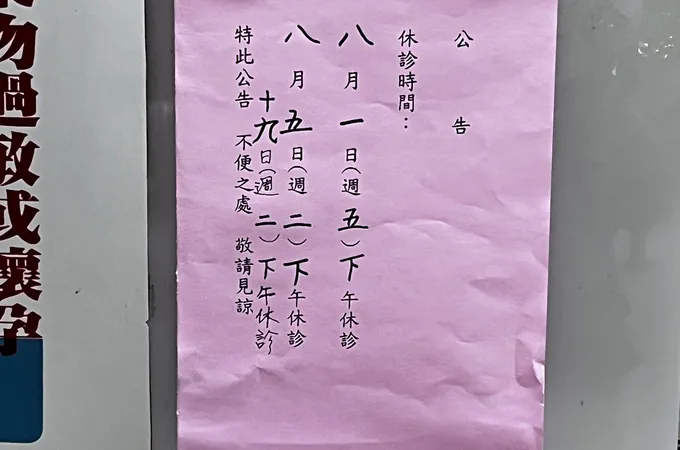 公告
休診時間：
八月一日(週五)下午休診
八月五日(週二)下午休診
十九日(週二)下午休診
特此公告 不便之處 敬請見諒
物過敏或懷孕